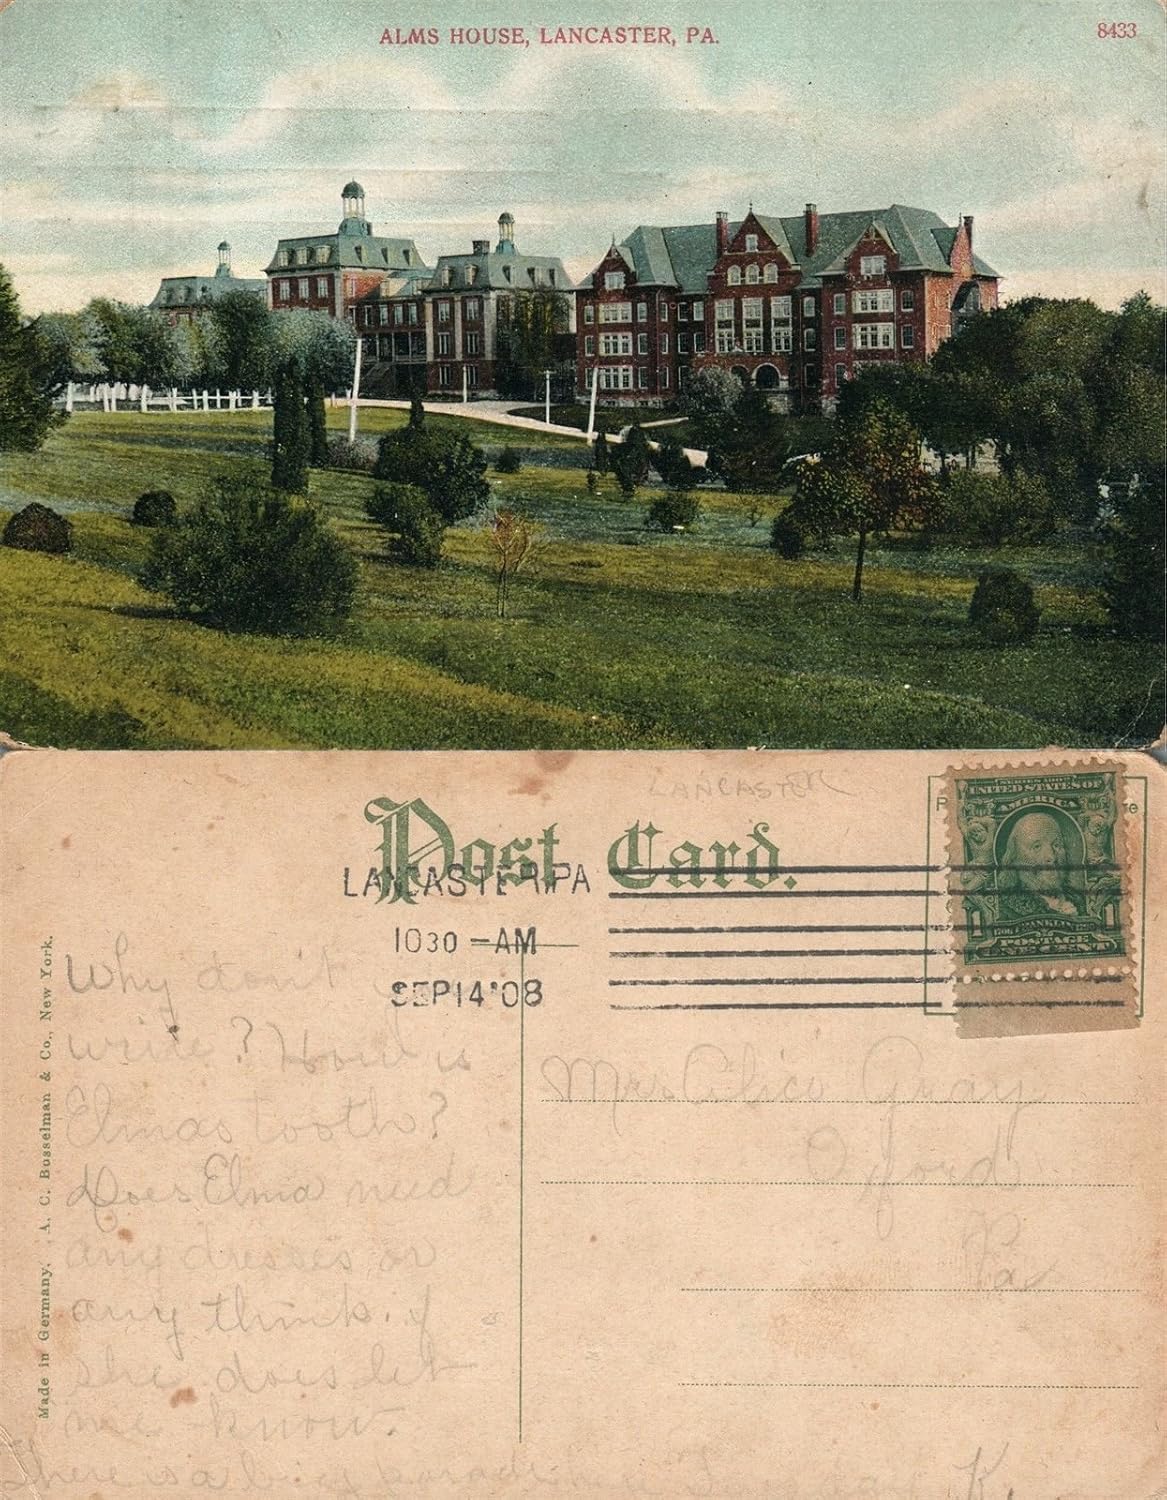 ALMS HOUSE, LANCASTER, PA.
8433
LANCASTER
Post Card.
LANCASTER PA
1030 -AM
SEP14'08
SERIES 1902
UNITED STATES OF
AMERICA
1 1
1706 FRANKLIN
POSTAGE
ONE CENT
Made in Germany. A. C. Bosselman & Co., New York.
Why don't
write? How is
Elmas tooth?
Does Elma need
any dresses or
any think. if
she does let
me know.
There is a big parade
K.
Mrs Alice Gray
Oxford
Pa